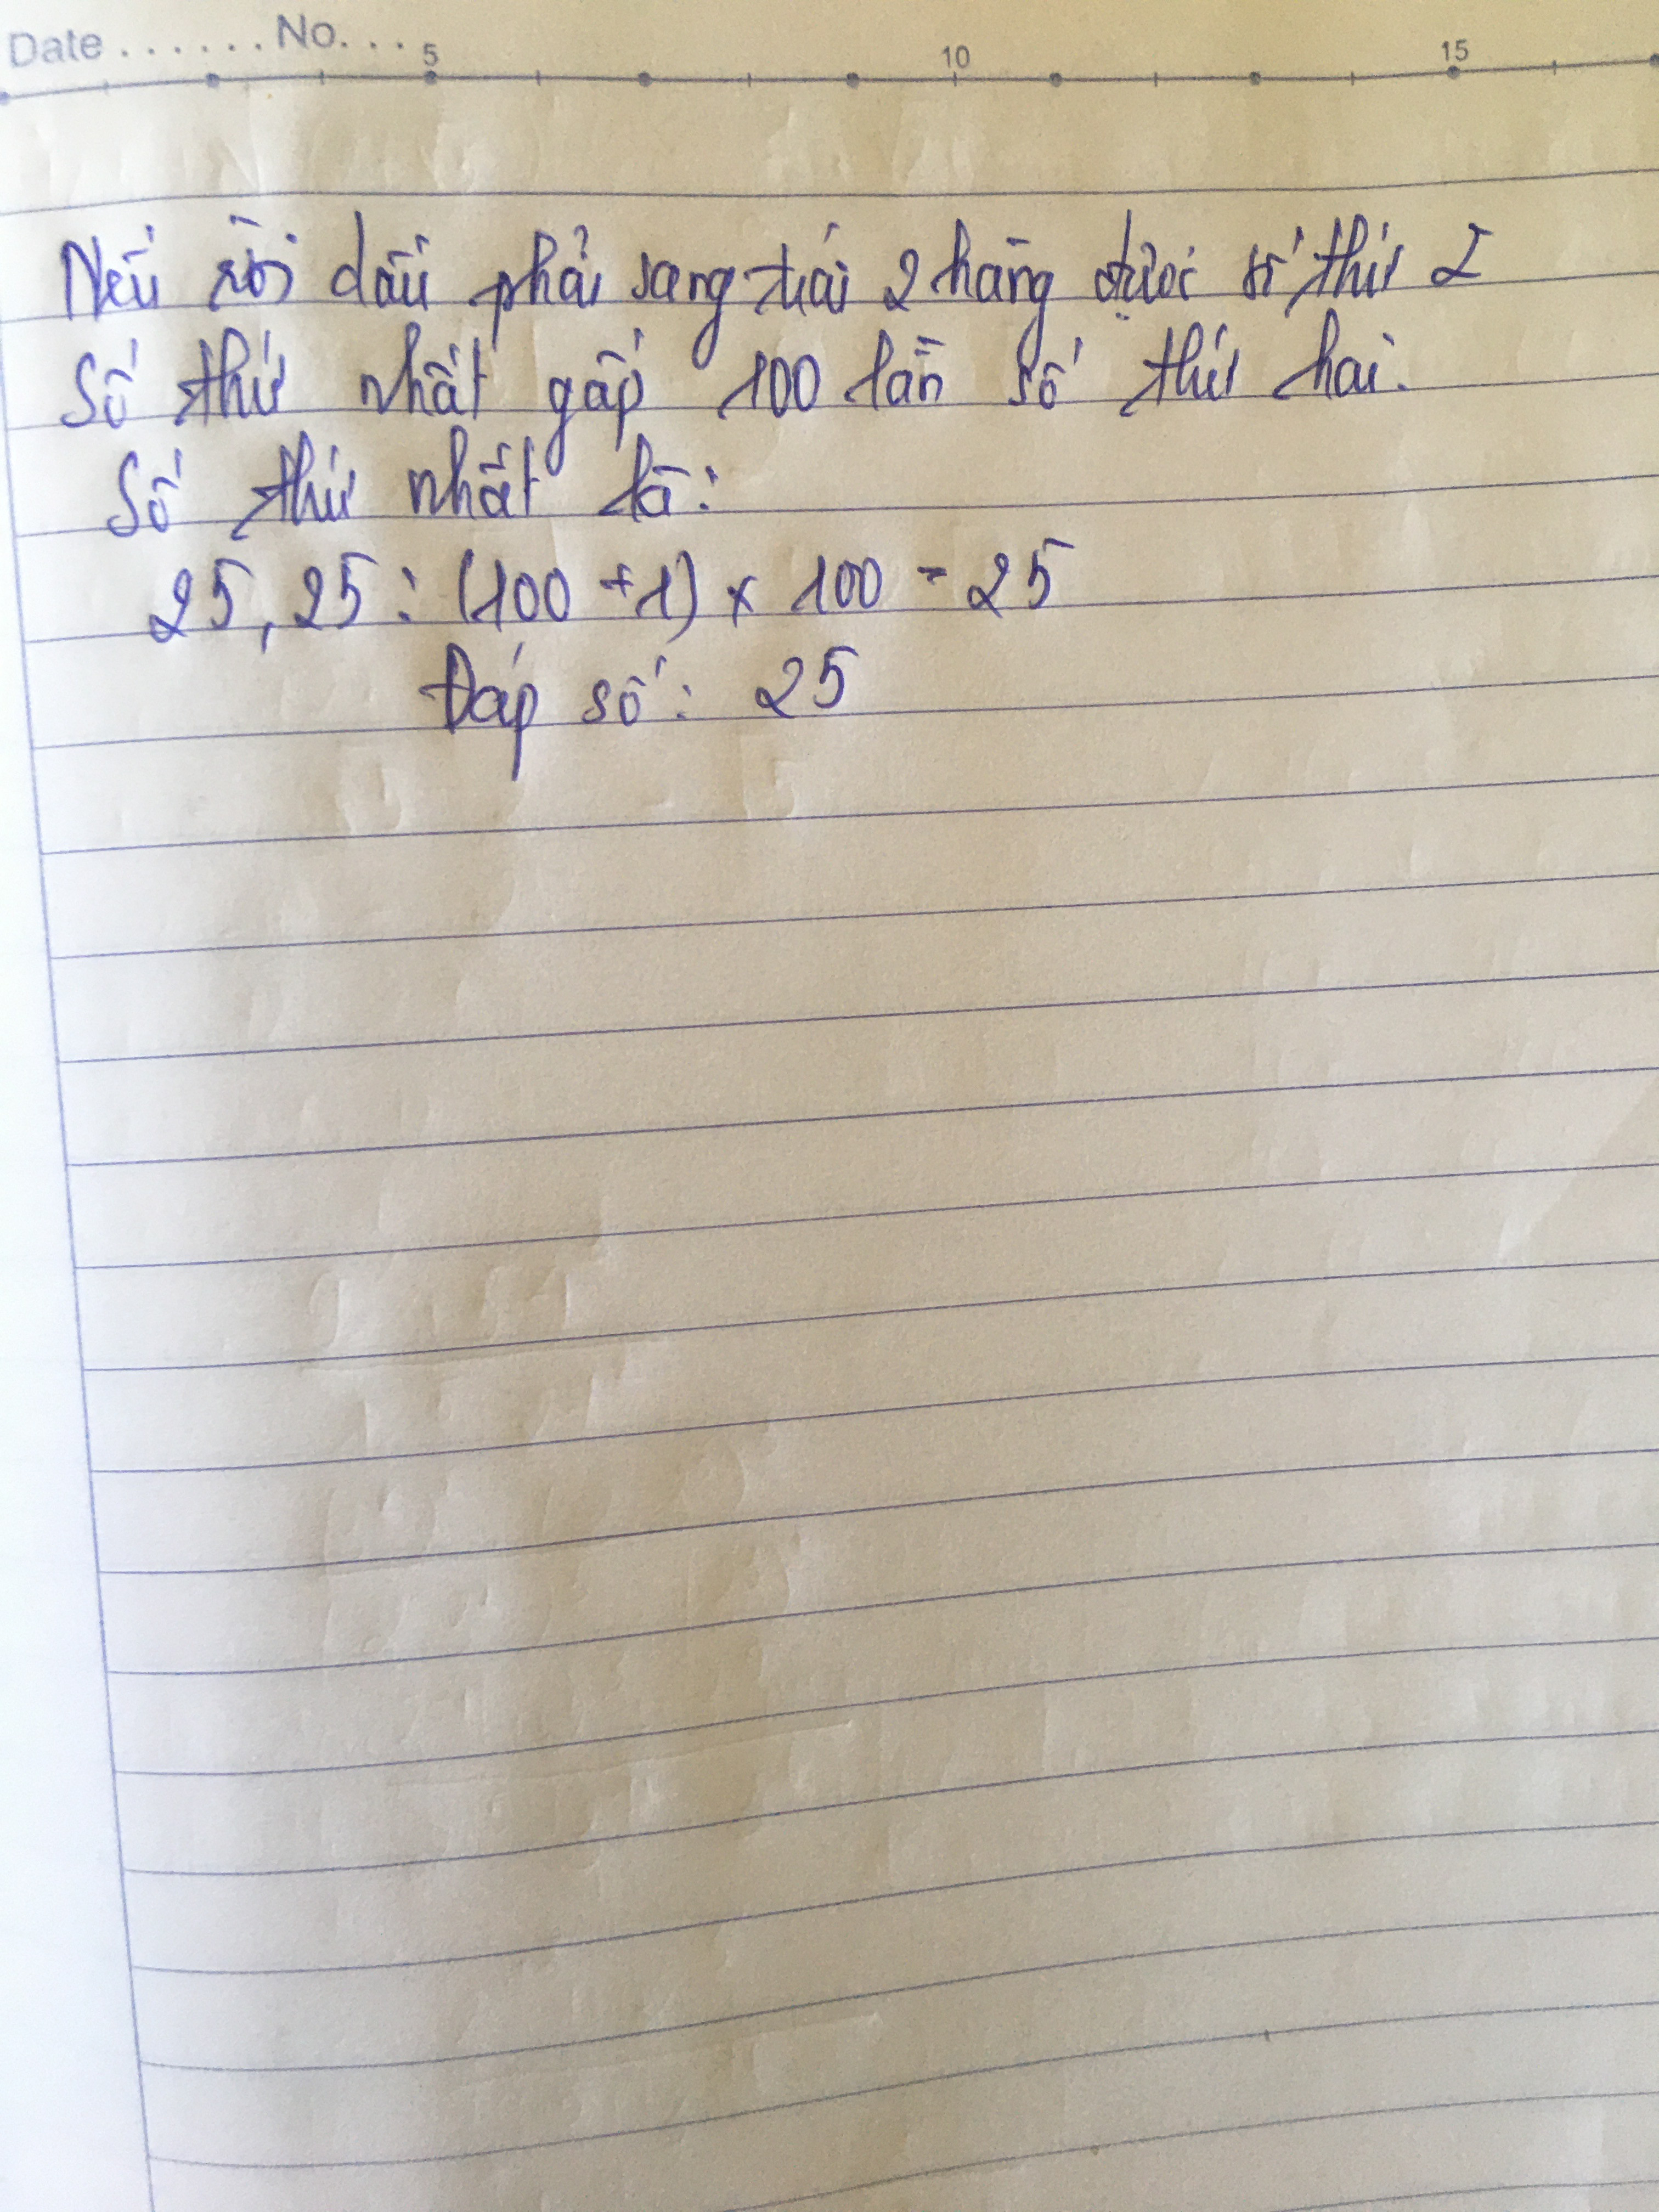 Date ...... No....
5 10 15
Nếu rời dấu phẩy sang trái 2 hàng được số thứ 2
Số thứ nhất gấp 100 lần số thứ hai.
Số thứ nhất là:
25,25 : (100 + 1) x 100 = 25
Đáp số: 25